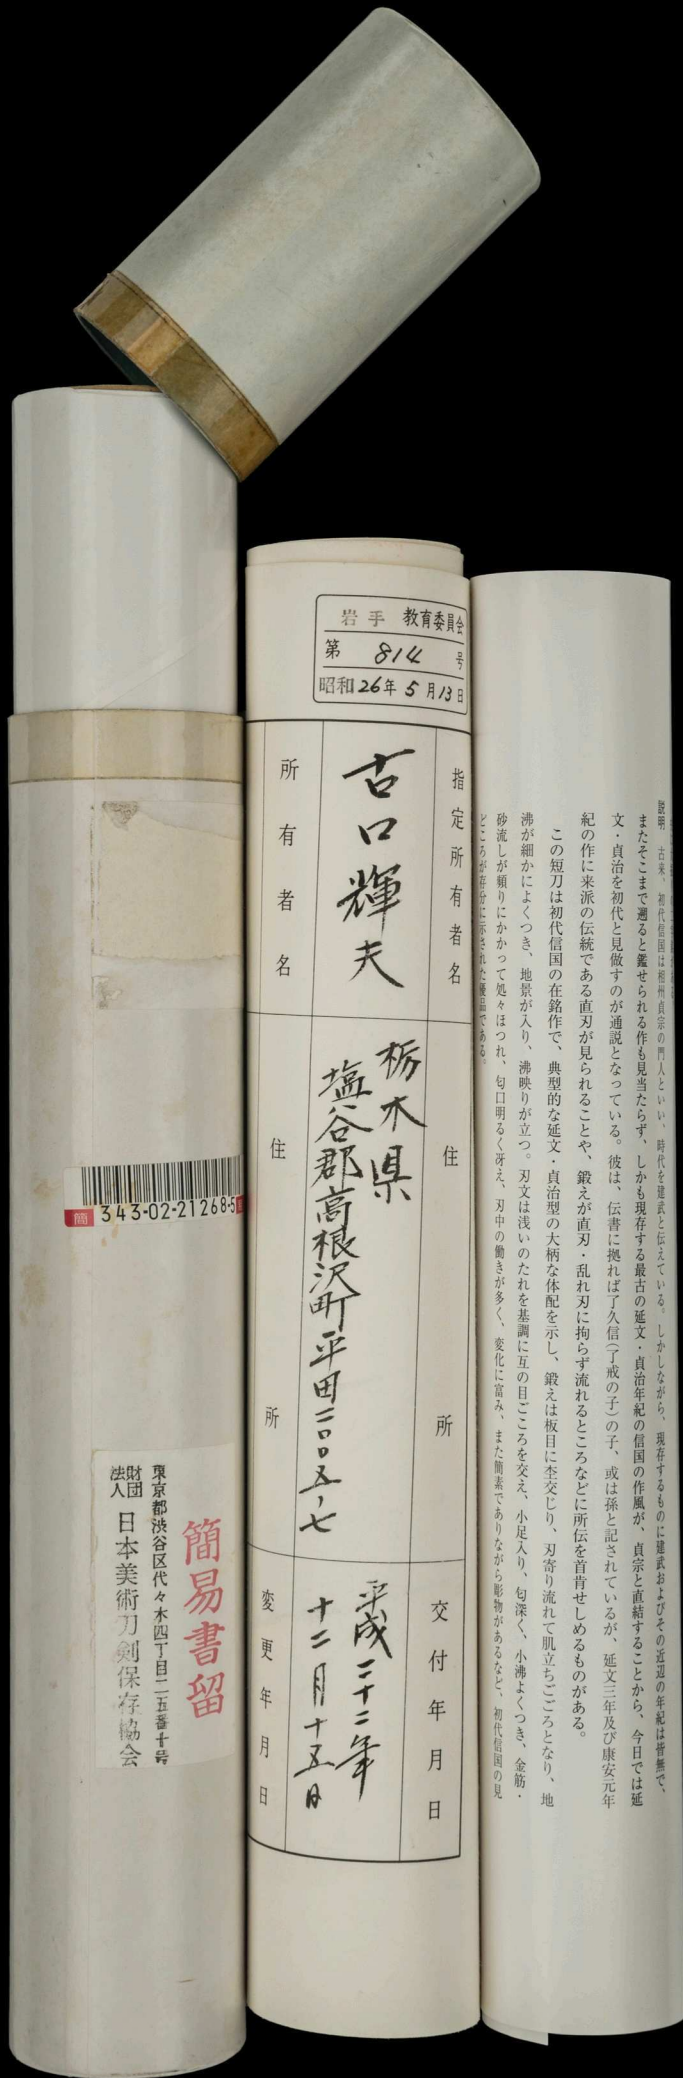 簡 343-02-21268-5
簡易書留
東京都渋谷区代々木四丁目二五番十号
財団法人 日本美術刀剣保存協会
岩手 教育委員会
第 814 号
昭和26年5月13日
指定所有者名
古口輝夫
所有者名
住所
栃木県
塩谷郡高根沢町平田二〇〇五-七
住所
交付年月日
平成二十二年
十二月十五日
変更年月日
説明 古来、初代信国は相州貞宗の門人といい、時代を建武と伝えている。しかしながら、現存するものに建武およびその近辺の年紀は皆無で、
またそこまで遡ると鑑せられる作も見当たらず、しかも現存する最古の延文・貞治年紀の信国の作風が、貞宗と直結することから、今日では延
文・貞治を初代と見做すのが通説となっている。彼は、伝書に拠れば了久信(了戒の子)の子、或は孫と記されているが、延文三年及び康安元年
紀の作に来派の伝統である直刃が見られることや、鍛えが直刃・乱れ刃に拘らず流れるところなどに所伝を首肯せしめるものがある。
この短刀は初代信国の在銘作で、典型的な延文・貞治型の大柄な体配を示し、鍛えは板目に杢交じり、刃寄り流れて肌立ちごころとなり、地
沸が細かによくつき、地景が入り、沸映りが立つ。刃文は浅いのたれを基調に互の目ごころを交え、小足入り、匂深く、小沸よくつき、金筋・
砂流しが頻りにかかって処々ほつれ、匂口明るく冴え、刃中の働きが多く、変化に富み、また簡素でありながら彫物があるなど、初代信国の見
どころが存分に示された優品である。